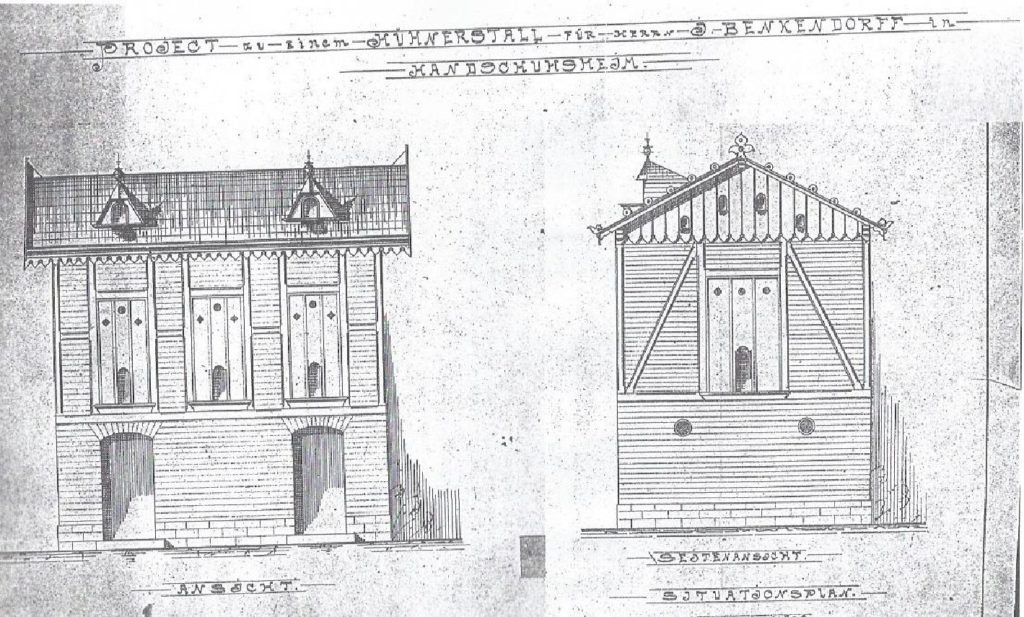 PROJECT zu einem HÜHNERSTALL für Herrn J. BENKENDORFF in
HANDSCHUHSHEIM.
ANSICHT.
SEITENANSICHT.
SITUATIONSPLAN.